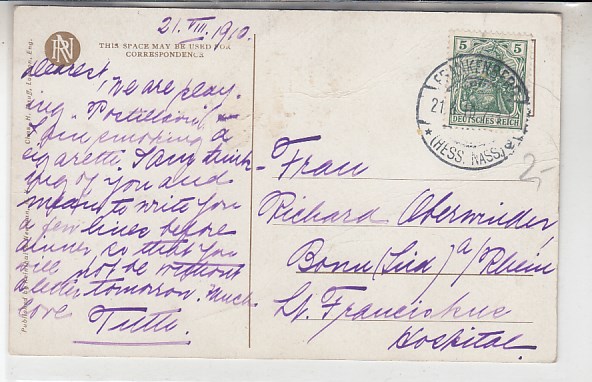 21. VIII. 1910.
THIS SPACE MAY BE USED FOR
CORRESPONDENCE
dearest, We are play-
ing "Postillion"
I am smoking a
cigarette. I am think-
ing of you and
mean to write you
a few lines before
dinner, so that you
will not be without
a letter tomorrow. Much
love Tutti.
5 5
DEUTSCHES REICH
21.
* (HESS. NASS.) a
Frau
Richard Oberwinder,
Bonn (Süd) a/Rhein
St. Franciskus
Hospital.
2-